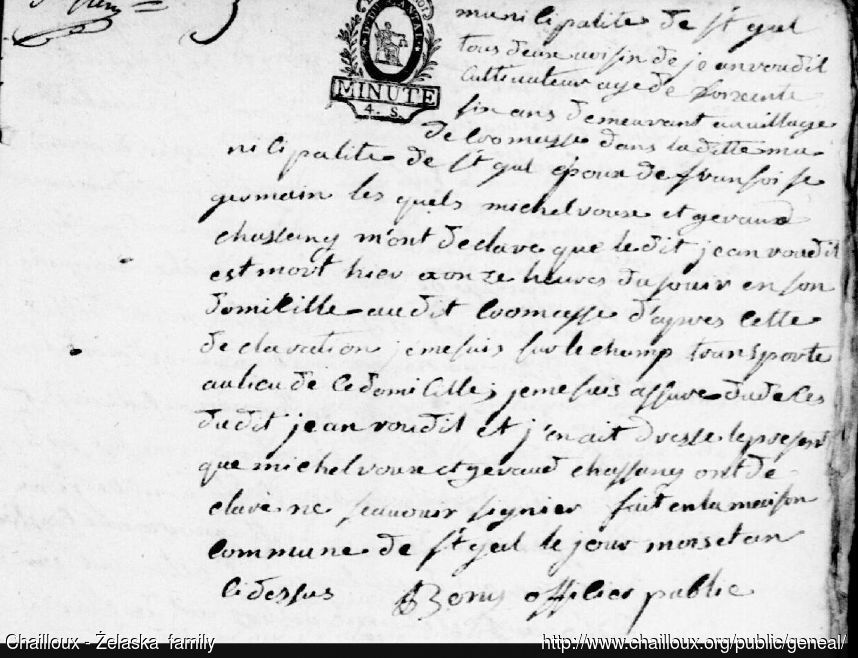 municipalite de st gal
tous deux voisin de jean voudil
cultivateur age de soixente
sin ans demeurant au village
MINUTE
4. S.
de cromasse dans la ditte mu
nicipalite de st gal epoux de fransoise
germain les quels michel voux et geraud
chassang m'ont declare que le dit jean roudil
est mort hier a onze heures du souir en son
domicille au dit cromasse d'apres cette
declaration je me suis sur le champ transporte
au lieu de ce domicille, je me suis assure du deces
du dit jean roudil et j'en ait dresse le present
que michel voux et geraud chassang ont de
clare ne scauouir signier fait en la maison
commune de st gal le jour mois et an
ci dessus Bony officier public
Chailloux - Żelaska family
http://www.chailloux.org/public/geneal/